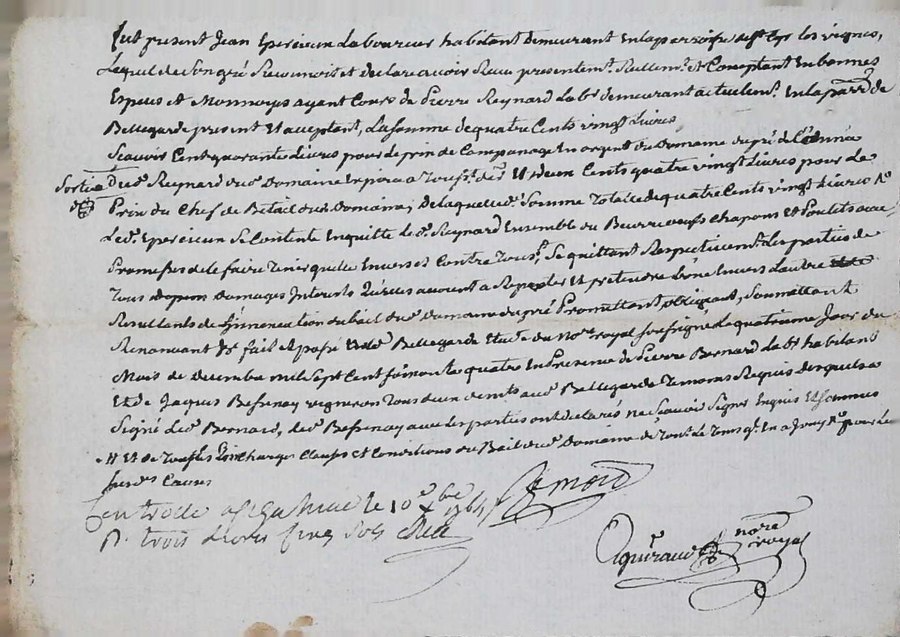 fut present Jean Epercieux Laboureur habitant demeurant en la parroisse de st Cyr les vignes,
Lequel de Son gré Reconnoit et declare avoir Recu presentemt. Reellemt. et Comptant En bonnes
Especes et Monnoyes ayant Cours de Pierre Reynard Labr. demeurant actuellemt. En la parrse. de
Bellegarde present Et acceptant, La Somme de quatre Cents vingt Livres
Scavoir Cent quarante Livres pour le prix de Campanage En argent du Domaine du pré de
Sortie Dud. Reynard dud. Domaine Expirera a Toust. der. Et deux Cents quatre vingt Livres pour Le
Prix du Chef de Betail dud. Domaine, De laquelle d. Somme Totale de quatre Cents vingt Livres
Led. Epercieux Se Contente En quitte Le d. Reynard Ensemble du Beurre oeufs Chapons Et Poulets avec
Promesses de le faire Tenir quitte Envers et Contre Tous, Se quittant Respectivemt. Les parties de
Tous depens Domages Interests qu'elles auroient a Repeter Et pretendre L'une Envers L'autre
Resultants de L'inexecution du bail dud. Domaine du pré Promettant, obligeant, Soumettant
Renoncant &c fait et passé aud. Bellegarde Etude du Nore. royal soussigné Le quatrieme Jour du
Mois de decembre mil Sept Cent Soixante quatre En Presence de Pierre Bernard Labr. habitant
Et de Jaques Bessenay vigneron Tous deux aud. Bellegarde Temoins Requis Lesquels a
Signé Led. Bernard, Led. Bessenay avec Les parties ont declarés ne Scavoir Signer Enquis Et Sommes
# Et de Toutes Les Charges Clauses et Conditions du Bail dud. Domaine de Tout Le Tems qu'il En a Jouy pour Les
susd. Causes
Controllé a le 10e xbre 1764
R. trois Livres cinq Sols
nore
royal